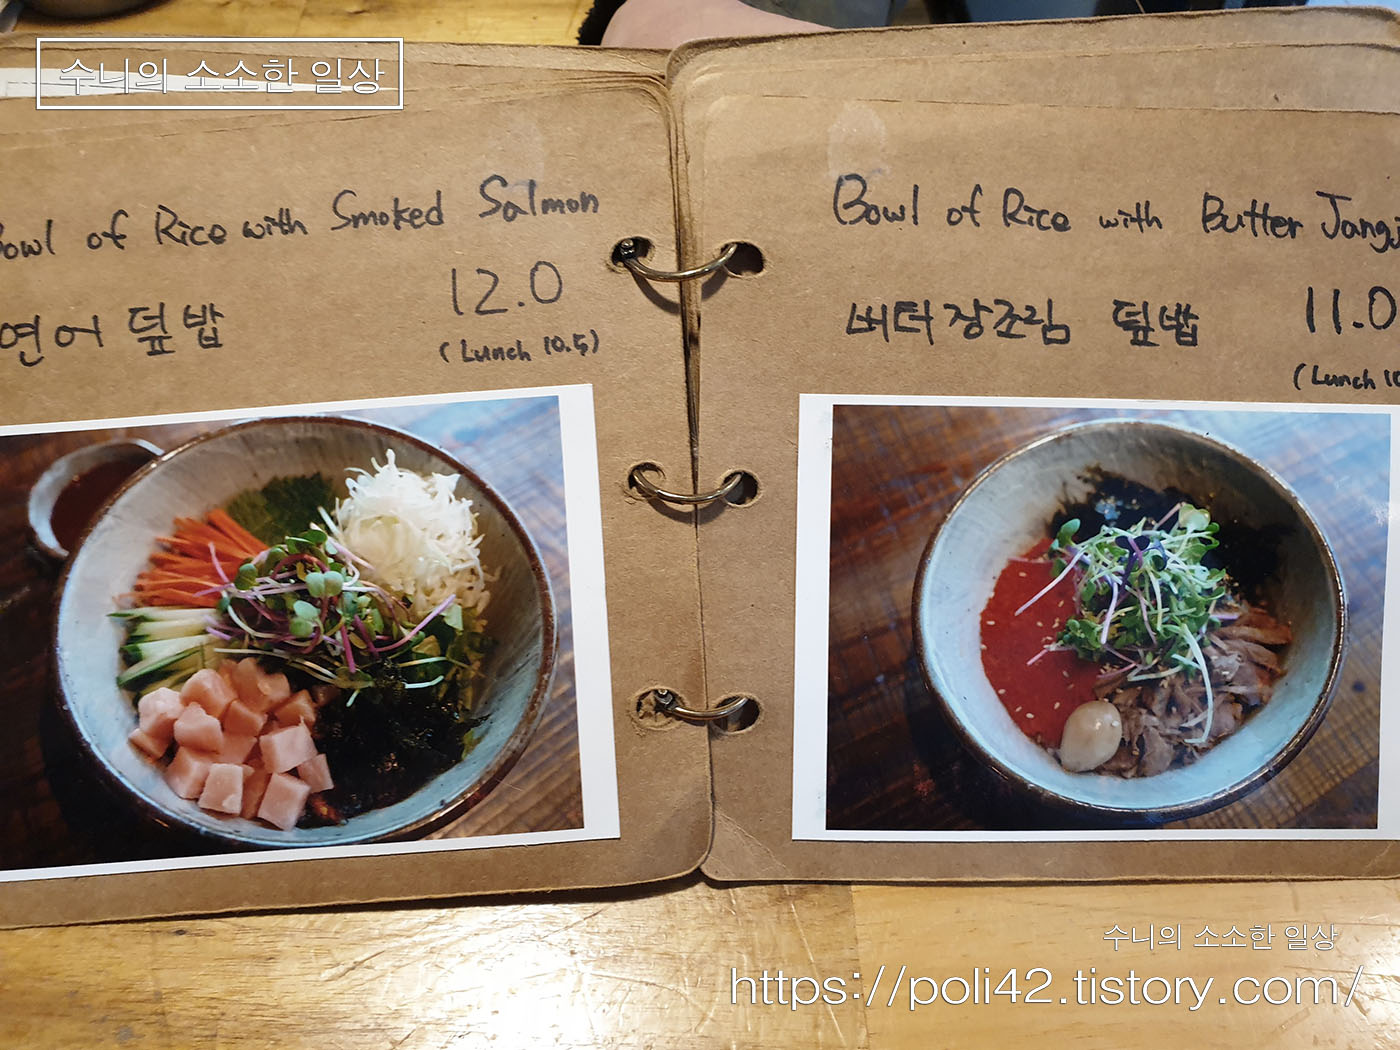 수니의 소소한 일상
of Rice with Smoked Salmon
연어 덮밥
12.0
(Lunch 10.5)
Bowl of Rice with Butter
버터장조림 덮밥
11.0
(Lunch
수니의 소소한 일상
https://poli42.tistory.com/